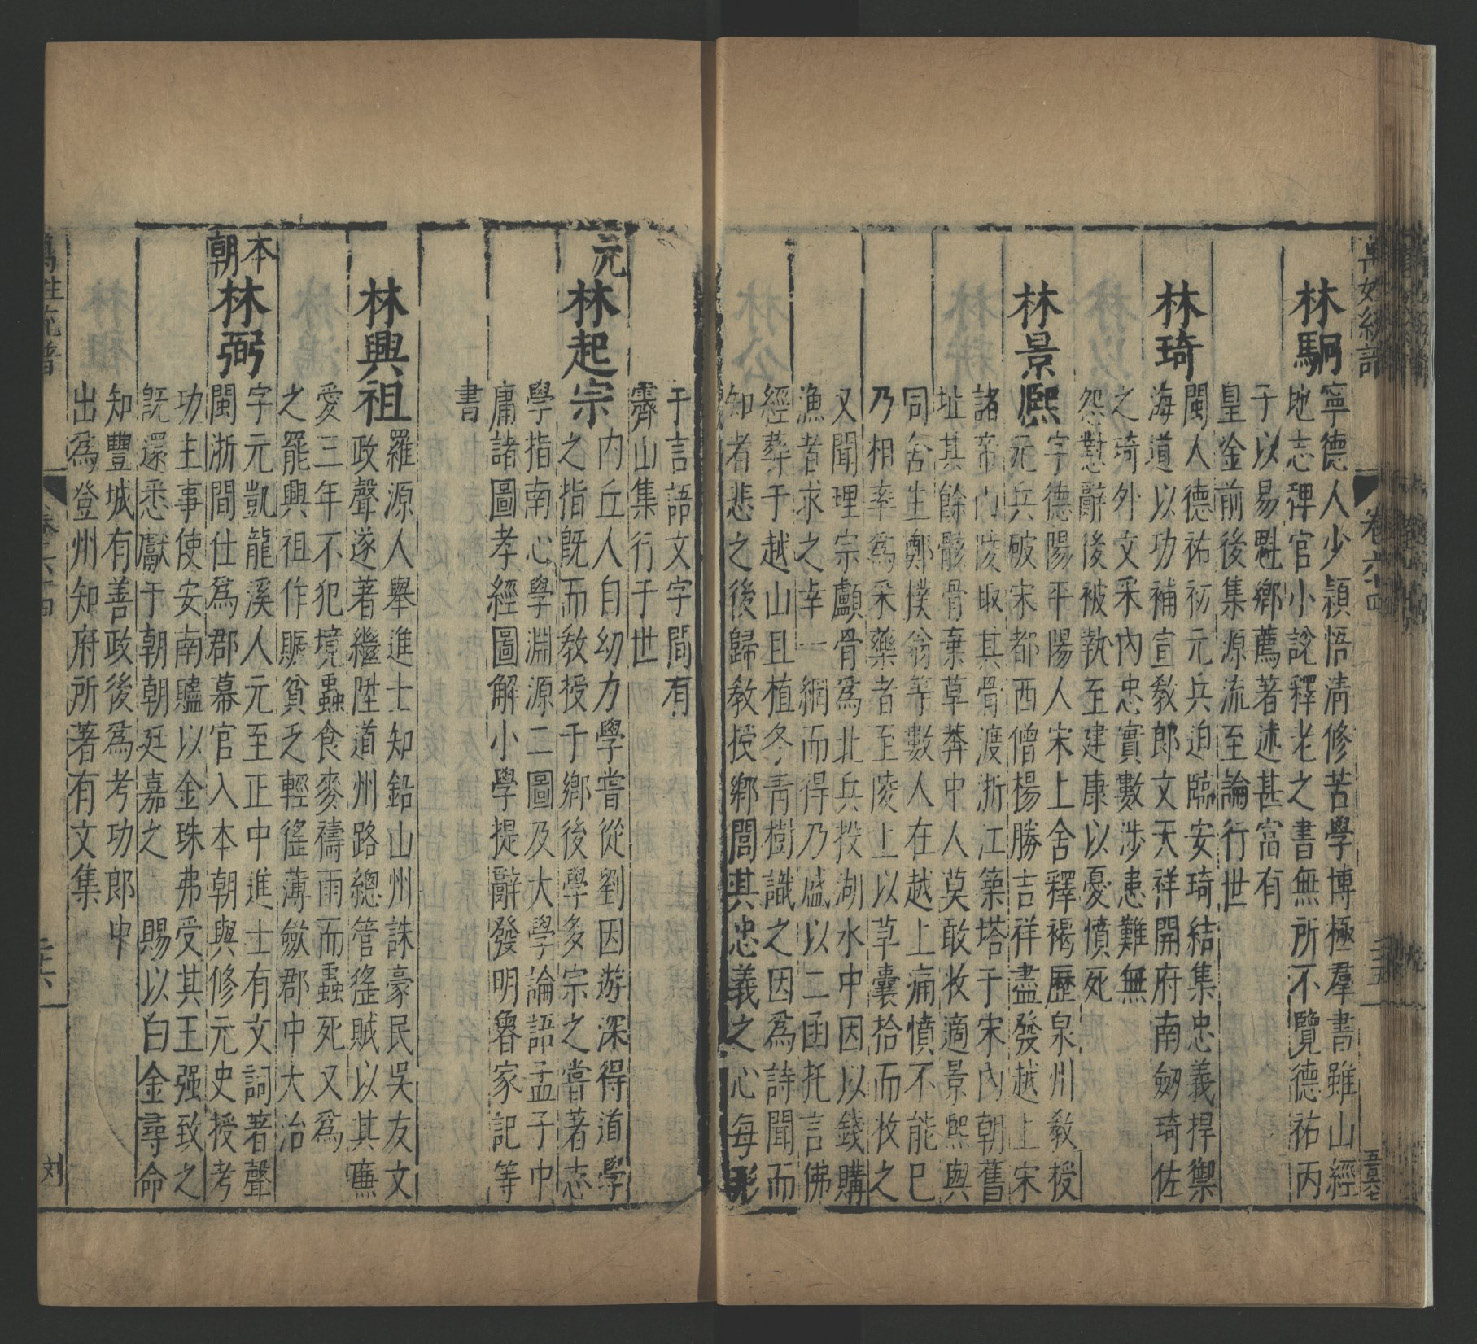 林駉
寧德人少頴悟淸修苦學博極羣書雖山經
地志稗官小說釋老之書無所不覽德祐丙
子以易魁鄉薦著述甚富有
皇鍳前後集源流至論行世
林琦
閩人德祐初元兵迫臨安琦結集忠義捍禦
海道以功補宣教郎文天祥開府南劒琦佐
之琦外文采內忠實數涉患難無
怨懟辭後被執至建康以憂憤死
林景熈
字德陽平陽人宋上舍釋褐歷泉州教授
元兵破宋都西僧楊勝吉祥盡發越上宋
諸帝山陵取其骨渡浙江築塔于宋內朝舊
址其餘骸骨棄草莽中人莫敢收適景熈與
同舍生鄭樸翁等數人在越上痛憤不能已
乃相率爲采藥者至陵上以草囊拾而收之
又聞理宗顱骨爲北兵投湖水中因以錢購
漁者求之幸一網而得乃盛以二函托言佛
經葬于越山且植冬靑樹識之因爲詩聞而
知者悲之後歸教授鄉閭其忠義之心每形
于言語文字間有
霽山集行于世
元
林起宗
內丘人自幼力學嘗從劉因游深得道學
之指旣而教授于鄉後學多宗之嘗著志
學指南心學淵源二圖及大學論語孟子中
庸諸圖孝經圖解小學提辭發明魯家記等
書
林興祖
羅源人舉進士知鉛山州誅豪民吳友文
政聲遂著繼陞道州路總管徭賊以其㢘
愛三年不犯境蟲食麥禱雨而蟲死又爲
之罷興祖作賑貧乏輕徭薄斂郡中大治
本朝
林弼
字元凱龍溪人元至正中進士有文詞著聲
閩浙間仕爲郡幕官入本朝與修元史授考
功主事使安南贐以金珠弗受其王强致之
旣還悉獻于朝朝廷嘉之 賜以白金尋命
知豐城有善政後爲考功郎中
出爲登州知府所著有文集